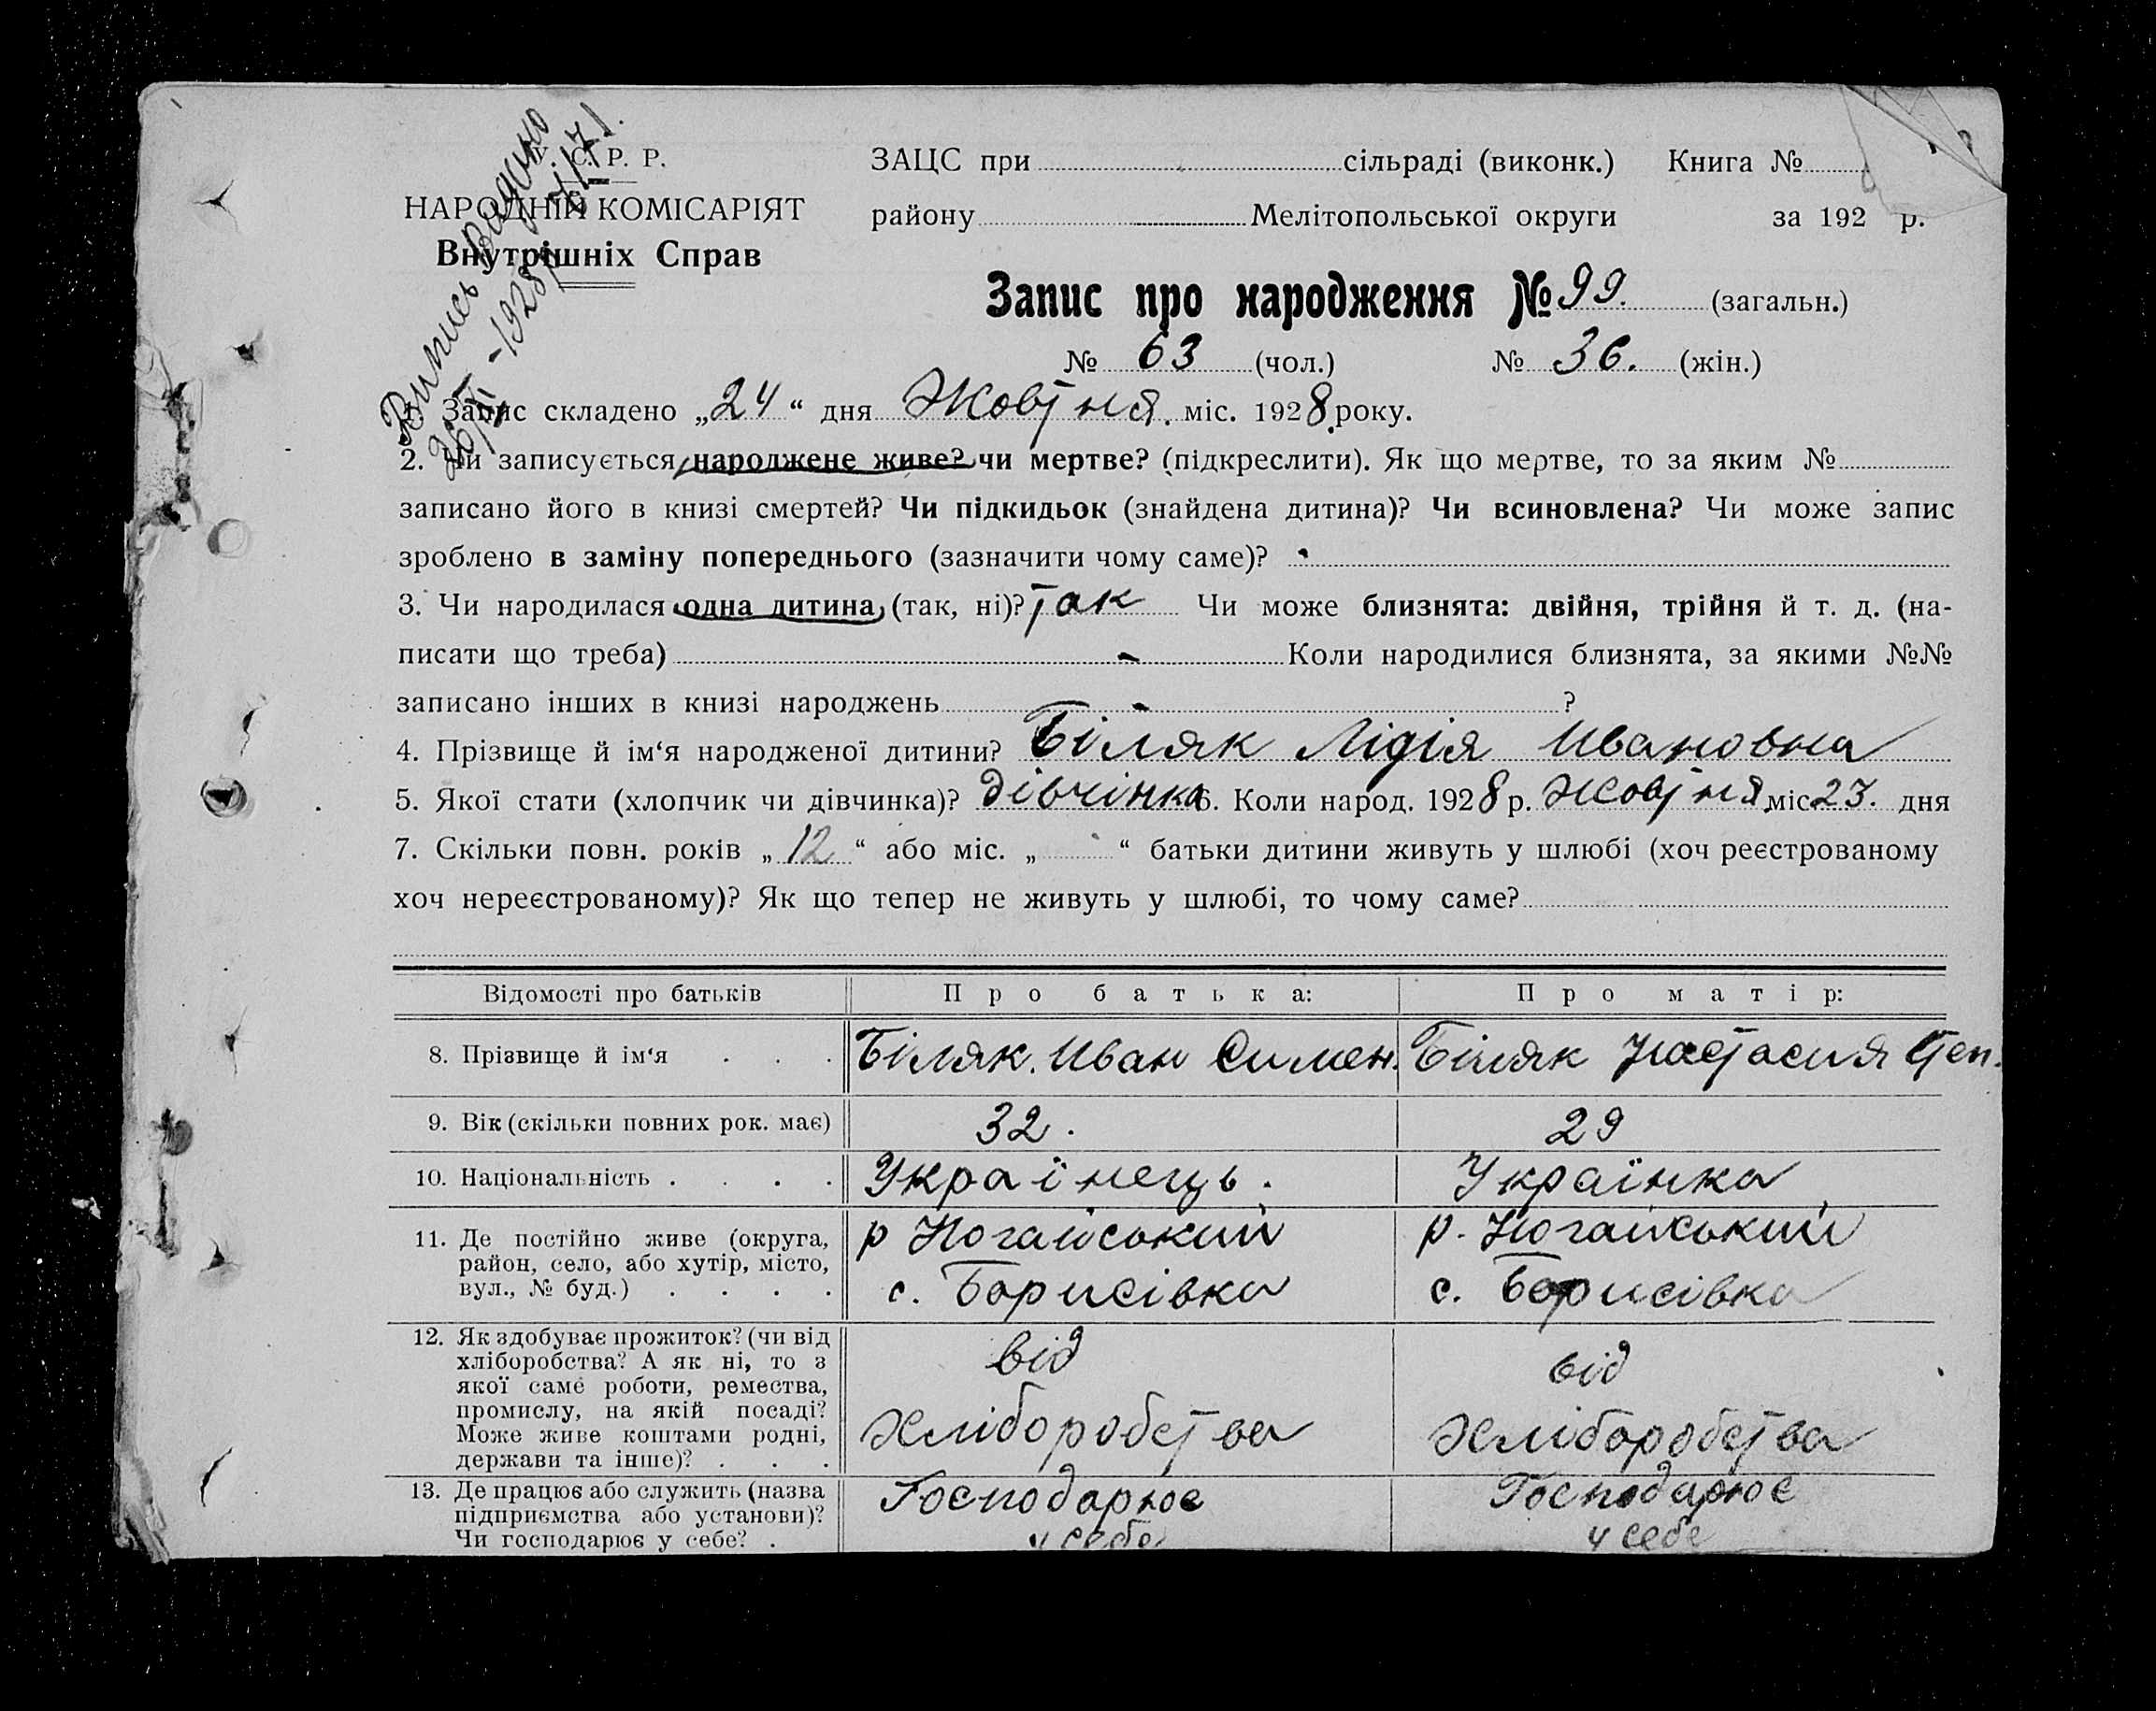 Випись видано
26/XI-1928р.
У. С. Р. Р.
НАРОДНІЙ КОМІСАРІЯТ
Внутрішніх Справ
ЗАЦС при сільраді (виконк.) Книга №
району Мелітопольської округи за 192 р.
Запис про народження № 99. (загальн.)
№ 63 (чол.) № 36. (жін.)
Запис складено „24“ дня Жовтня. міс. 1928 року.
2. Чи записується народжене живе? чи мертве? (підкреслити). Як що мертве, то за яким №
записано його в книзі смертей? Чи підкидьок (знайдена дитина)? Чи всиновлена? Чи може запис
зроблено в заміну попереднього (зазначити чому саме)?
3. Чи народилася одна дитина, (так, ні)? так Чи може близнята: двійня, трійня й т. д. (на-
писати що треба) - Коли народилися близнята, за якими №№
записано інших в книзі народжень - ?
4. Прізвище й ім‘я народженої дитини? Біляк Лідія Ивановна
5. Якої стати (хлопчик чи дівчинка)? Дівчінка 6. Коли народ. 1928 р. Жовтня міс 23. дня
7. Скільки повн. років „12“ або міс. „ “ батьки дитини живуть у шлюбі (хоч реєстрованому
хоч нереєстрованому)? Як що тепер не живуть у шлюбі, то чому саме?
Відомості про батьків Про батька: Про матір:
8. Прізвище й ім‘я . . . Біляк. Иван Симен. Біляк Настасия Степ.
9. Вік (скільки повних рок. має) 32. 29
10. Національність . . . . Українець. Українка
11. Де постійно живе (округа, район, село, або хутір, місто, вул., № буд.) . . . . р Ногайський с. Борисівка р. Ногайський с. Борисівка
12. Як здобуває прожиток? (чи від хліборобства? А як ні, то з якої саме роботи, ремества, промислу, на якій посаді? Може живе коштами родні, держави та інше)? . . . від Хліборобства від Хліборобства
13. Де працює або служить (назва підприємства або установи)? Чи господарює у себе? . Господарює у себе Господарює у себе